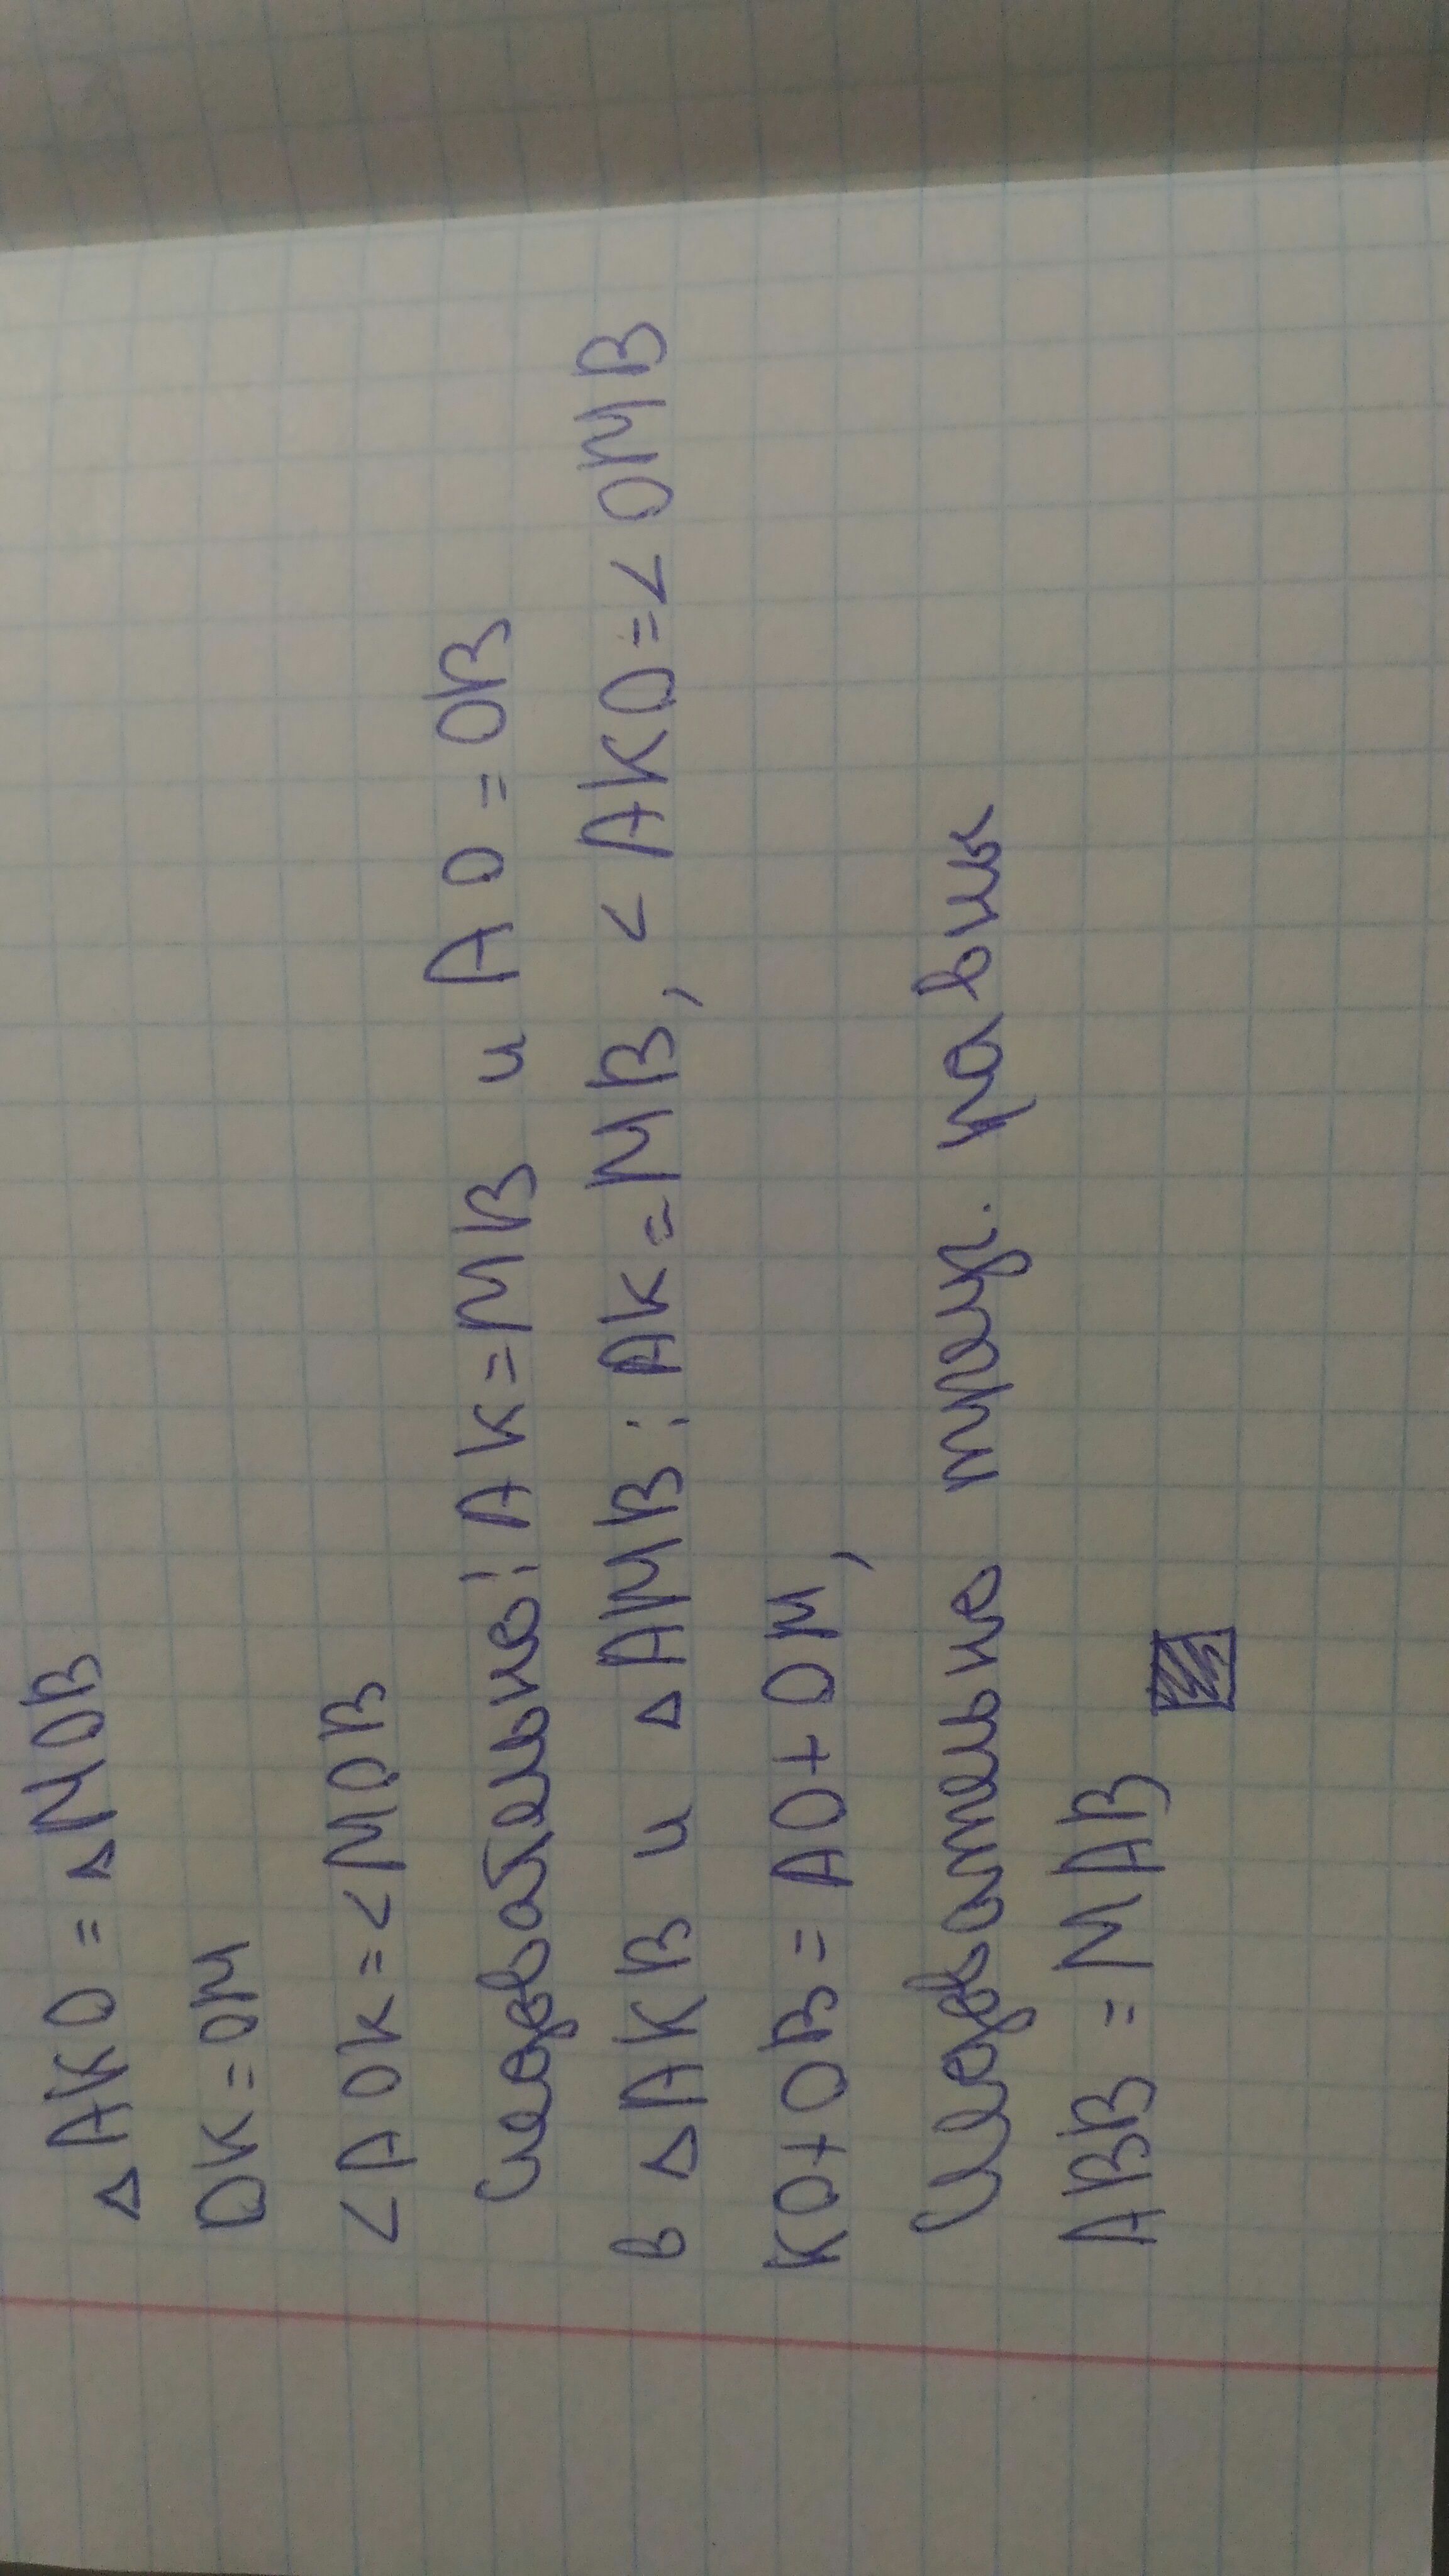 △AKO = △MOB
OK = OM
<AOK = <MOB
Следовательно: AK = MB и AO = OB
в △AKB и △AMB: AK = MB, <AKO = <OMB
KO + OB = AO + OM,
Следовательно треуг. равны
ABB = MAB